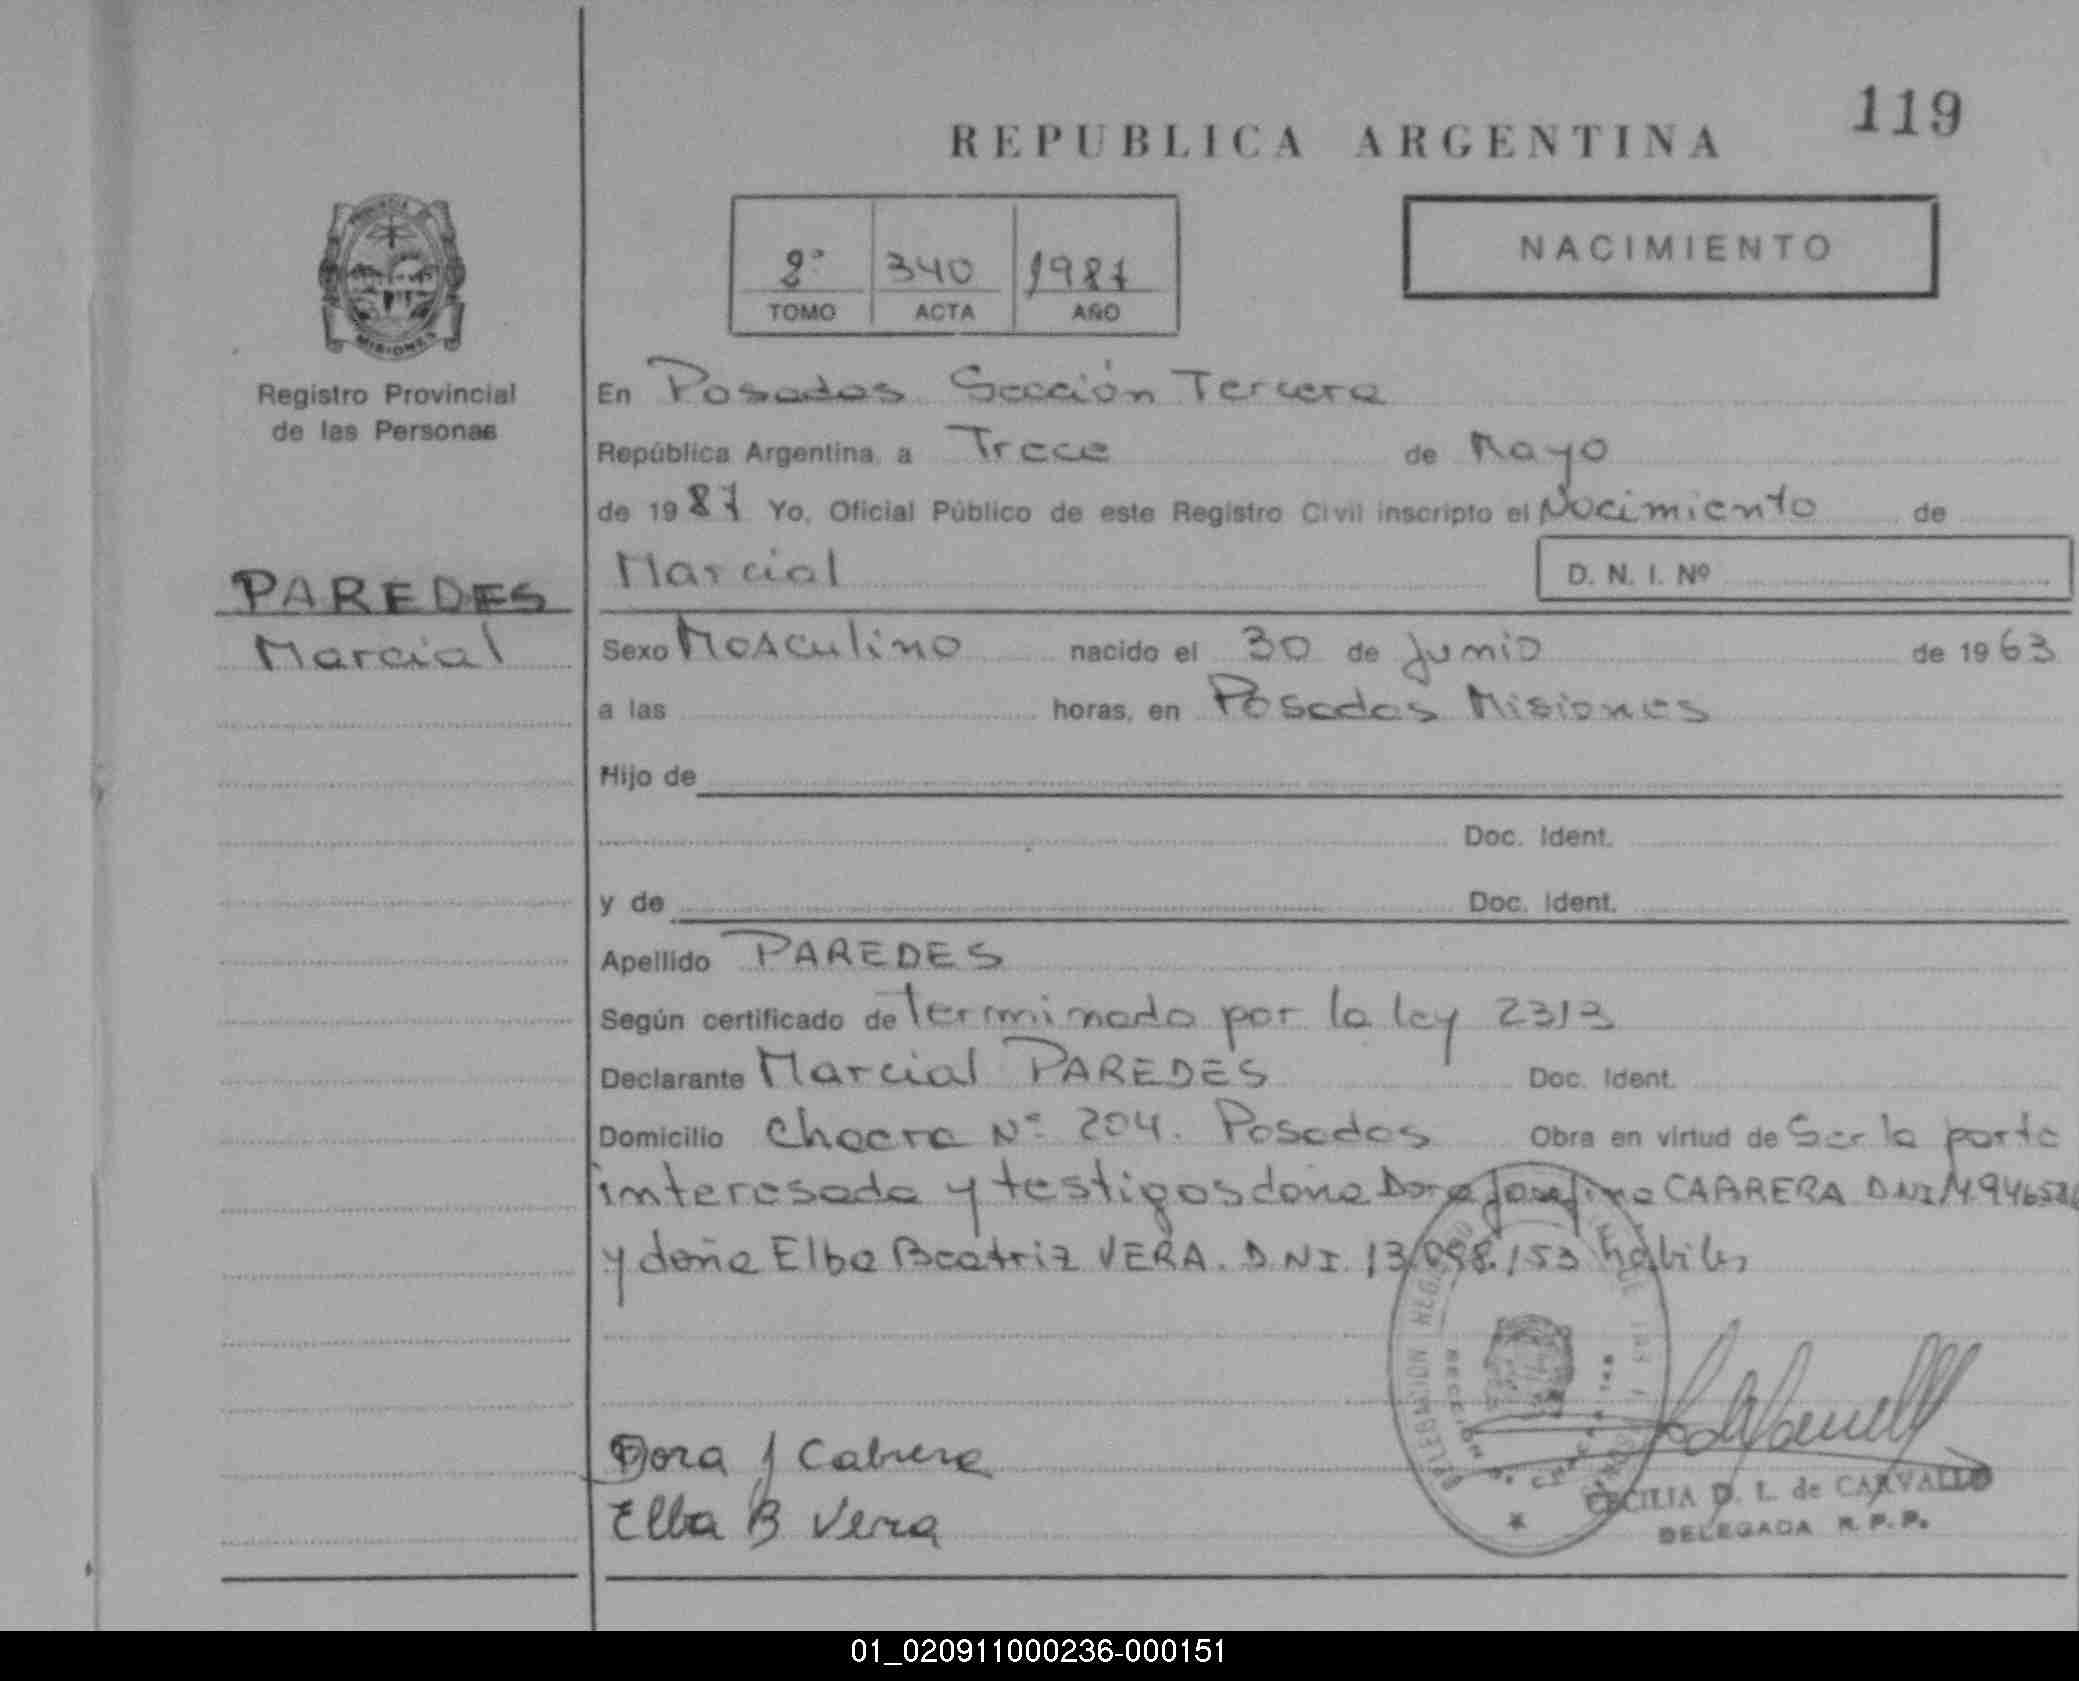 119
REPUBLICA ARGENTINA
2º 340 1987
TOMO ACTA AÑO
NACIMIENTO
MISIONES
Registro Provincial
de las Personas
PAREDES
Marcial
En Posadas Sección Tercera
República Argentina, a Trece de Mayo
de 1987 Yo, Oficial Público de este Registro Civil inscripto el Nacimiento de
Marcial D. N. I. Nº
Sexo Masculino nacido el 30 de Junio de 1963
a las horas, en Posadas Misiones
Hijo de
Doc. Ident.
y de Doc. Ident.
Apellido PAREDES
Según certificado de terminado por la ley 2313
Declarante Marcial PAREDES Doc. Ident.
Domicilio Chacra Nº 204. Posadas Obra en virtud de Ser la parte
interesada y testigos doña Dora Josefina CABRERA D.N.I.
y doña Elba Beatriz VERA. D.N.I. 13.098.153 hábiles
DELEGACION
SECCION
Dora J Cabrera
Elba B Vera
CECILIA D. L. de CARVALLO
DELEGADA R. P. P.
01_020911000236-000151